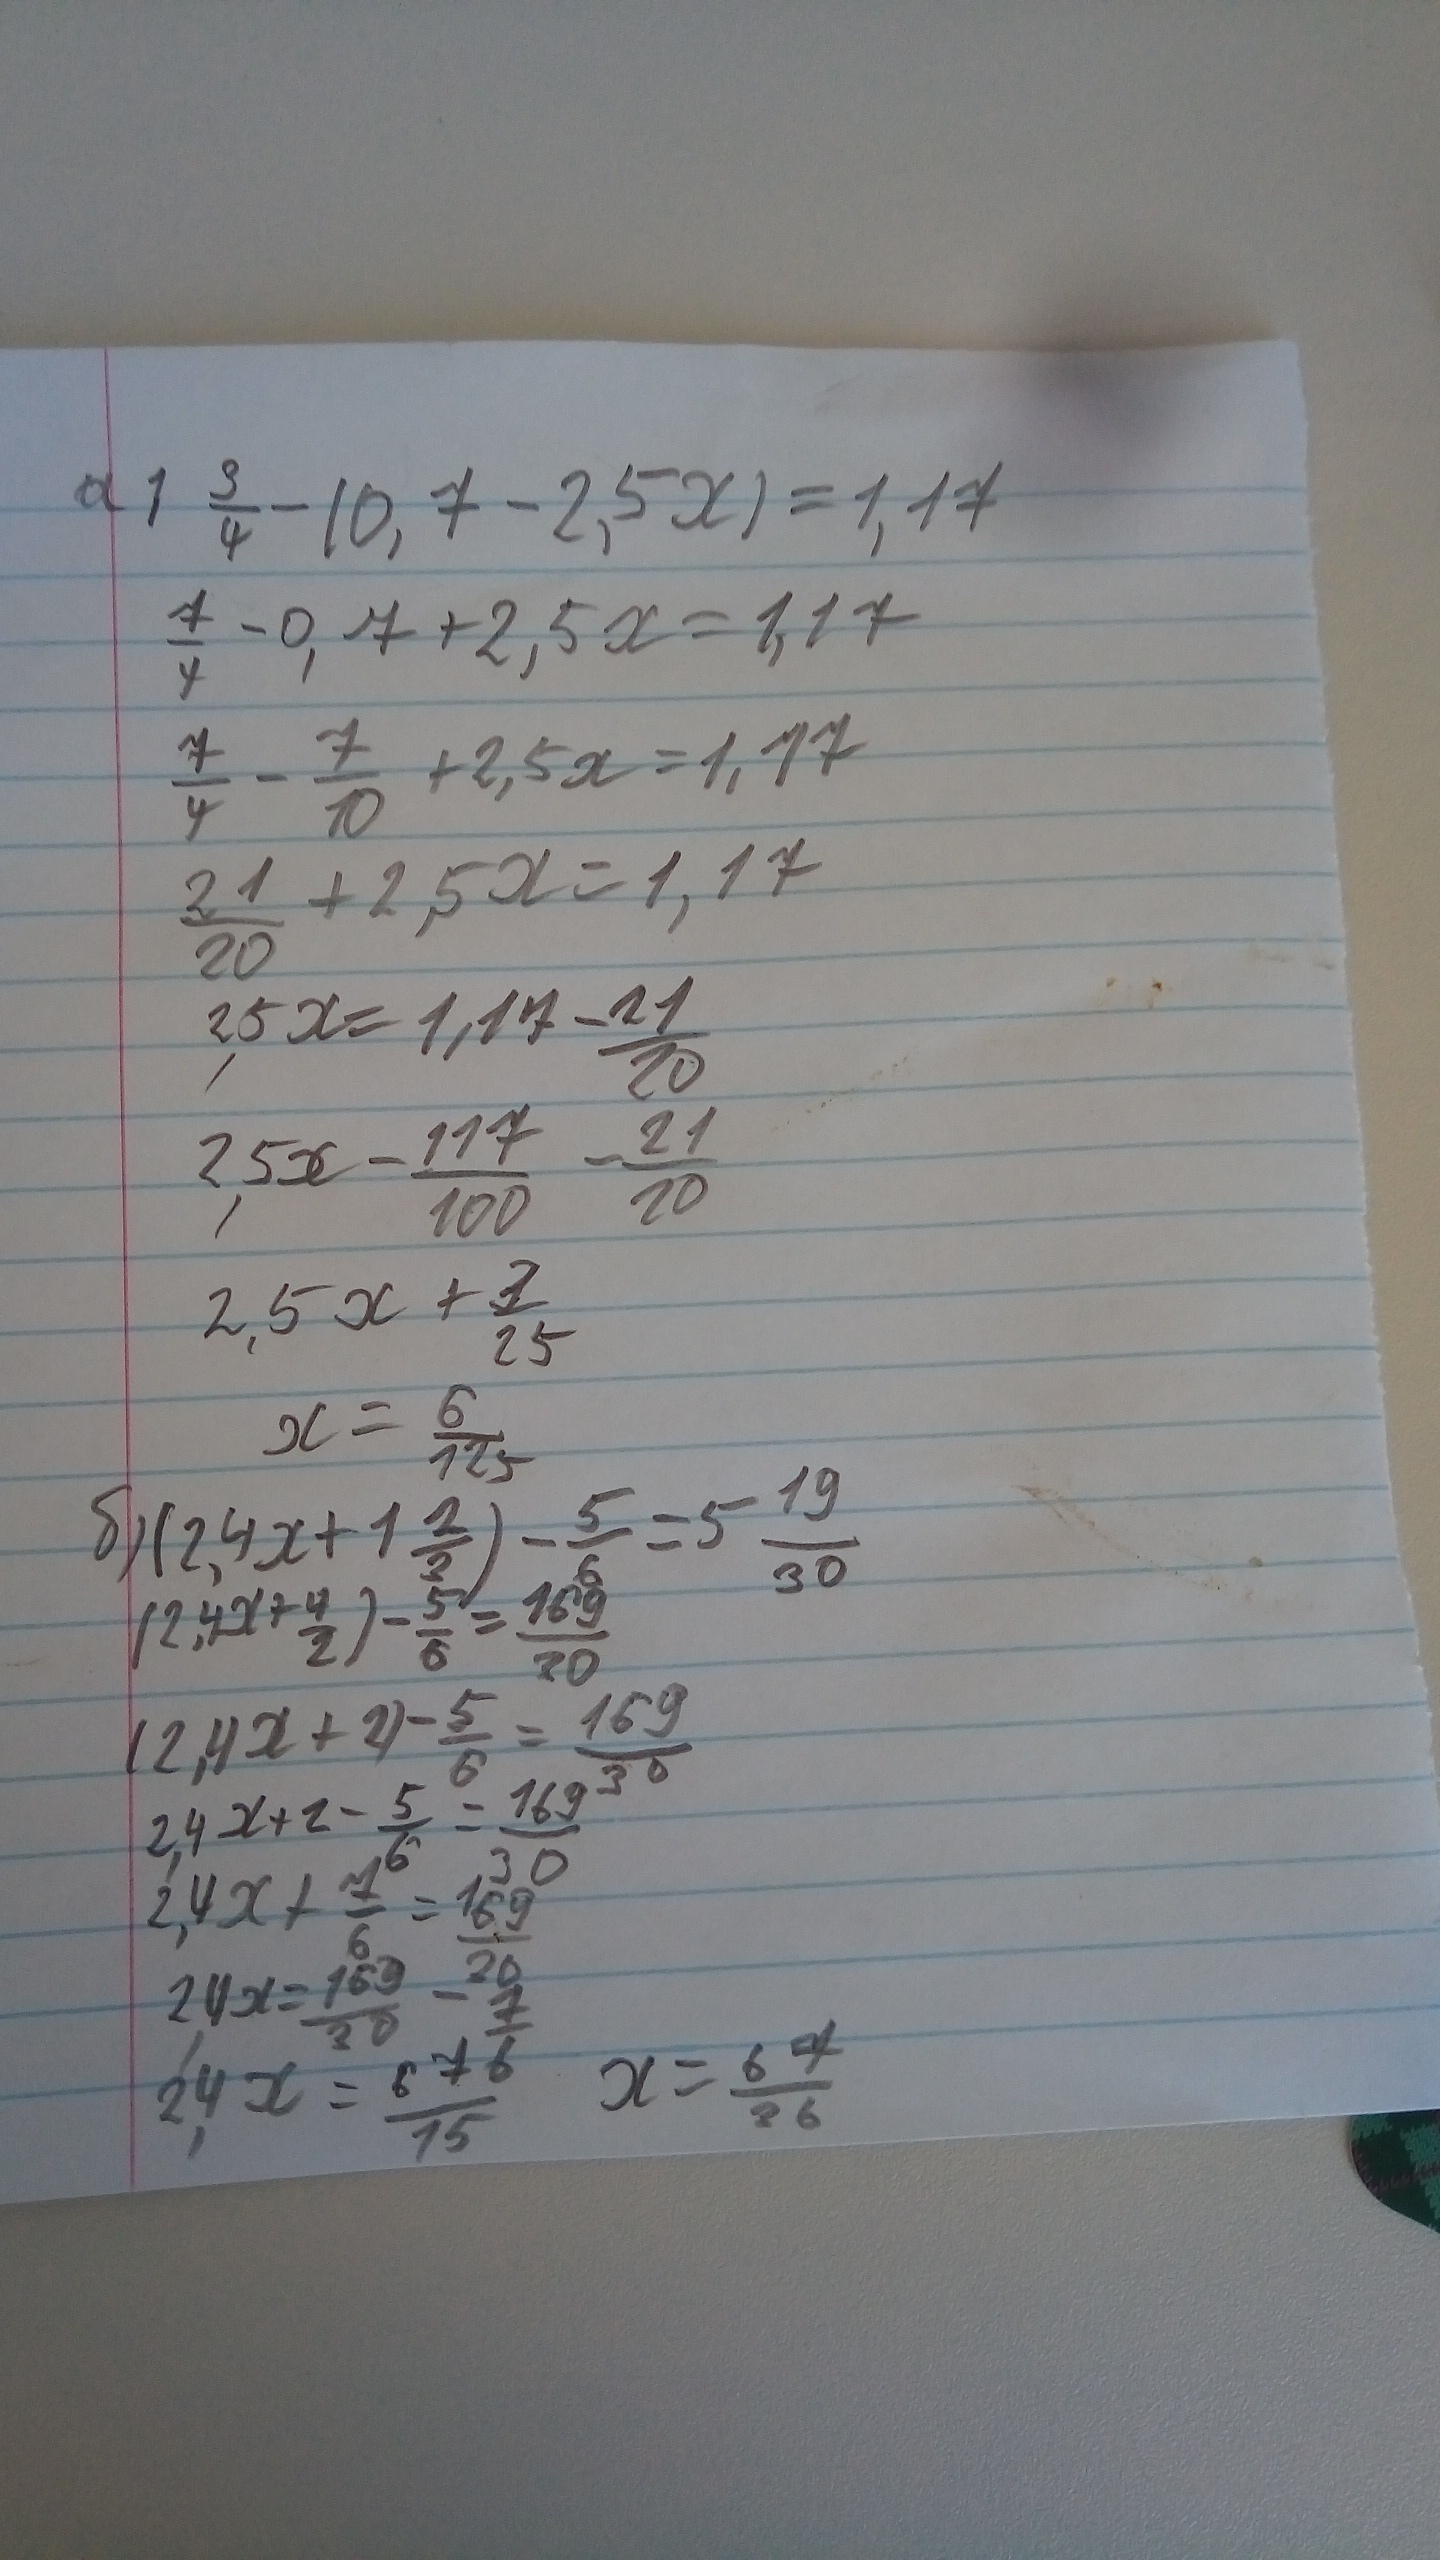 а) 3/4 - (0,7 - 2,5x) = 1,17
7/4 - 0,7 + 2,5x = 1,17
7/4 - 7/10 + 2,5x = 1,17
21/20 + 2,5x = 1,17
2,5x = 1,17 - 21/20
2,5x - 117/100 - 21/20
2,5x + 3/25
x = 6/125
б) (2,4x + 1 2/3) - 5/6 = 5 19/30
(2,4x + 4/2) - 5/6 = 169/30
(2,4x + 2) - 5/6 = 169/30
2,4x + 2 - 5/6 = 169/30
2,4x + 7/6 = 169/30
2,4x = 169/30 - 7/6
2,4x = 67/15 x = 67/36